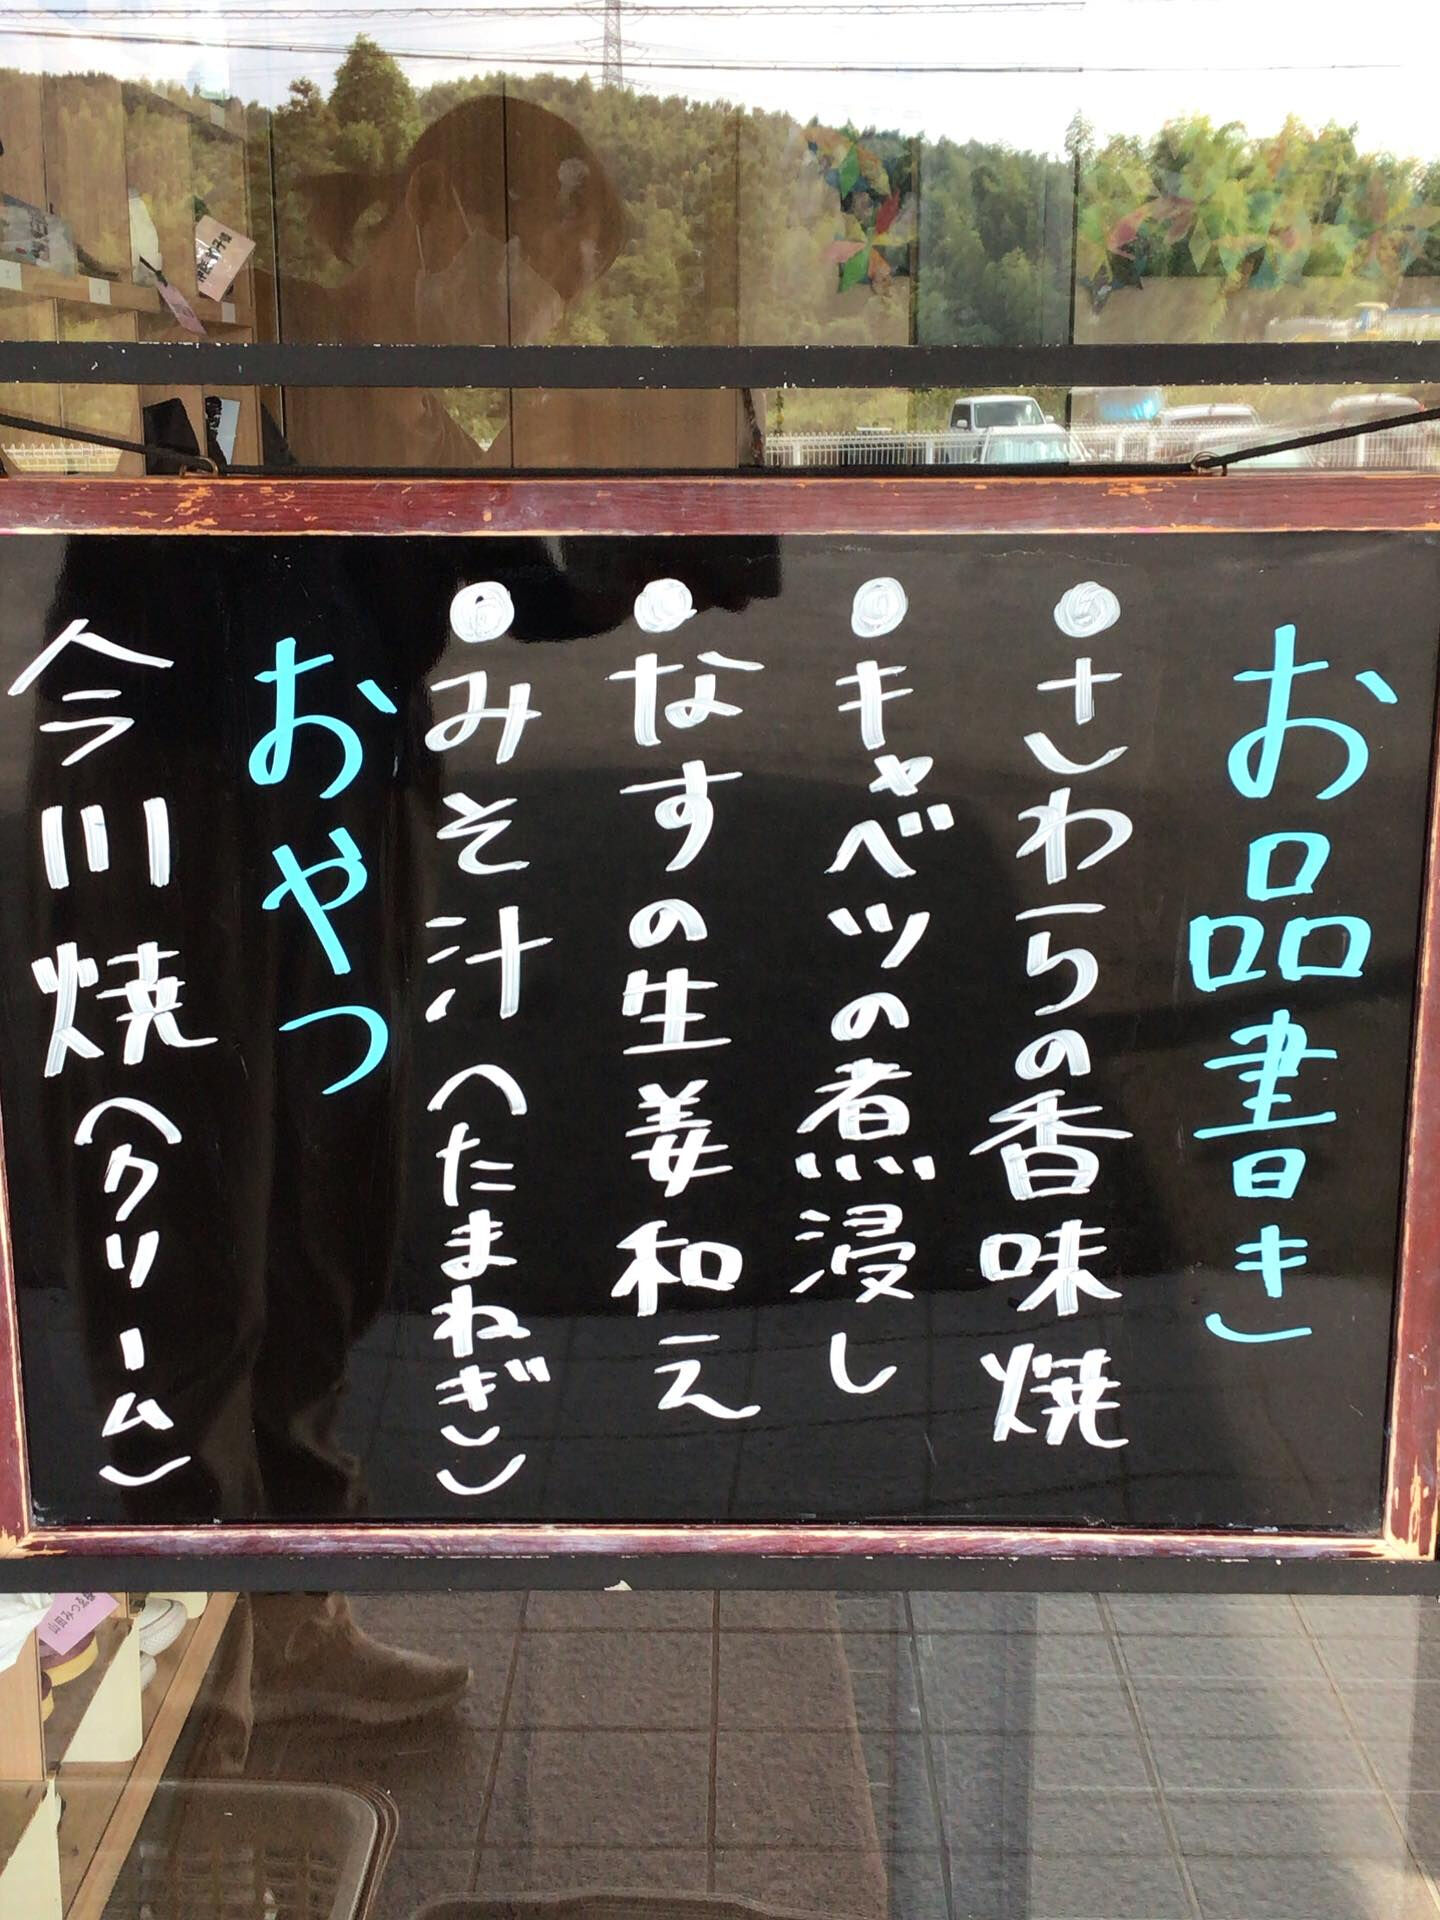 お品書き
●さわらの香味焼
●キャベツの煮浸し
●なすの生姜和え
●みそ汁(たまねぎ)
おやつ
今川焼(クリーム)